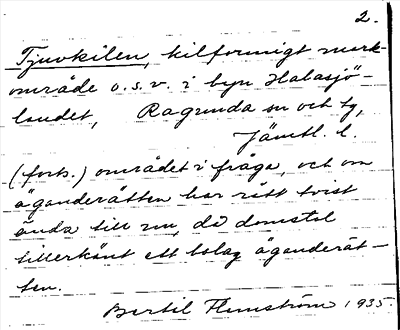 2.
Tjuvkilen, kilformigt mark-
område o.s.v. i byn Halasjö-
landet, Ragunda sn och tg,
Jämtl. l.
(forts.) området i fråga, och om
äganderätten har rått tvist
ända till nu, då domstol
tillerkänt ett bolag äganderät-
ten.
Bertil Flemström 1935